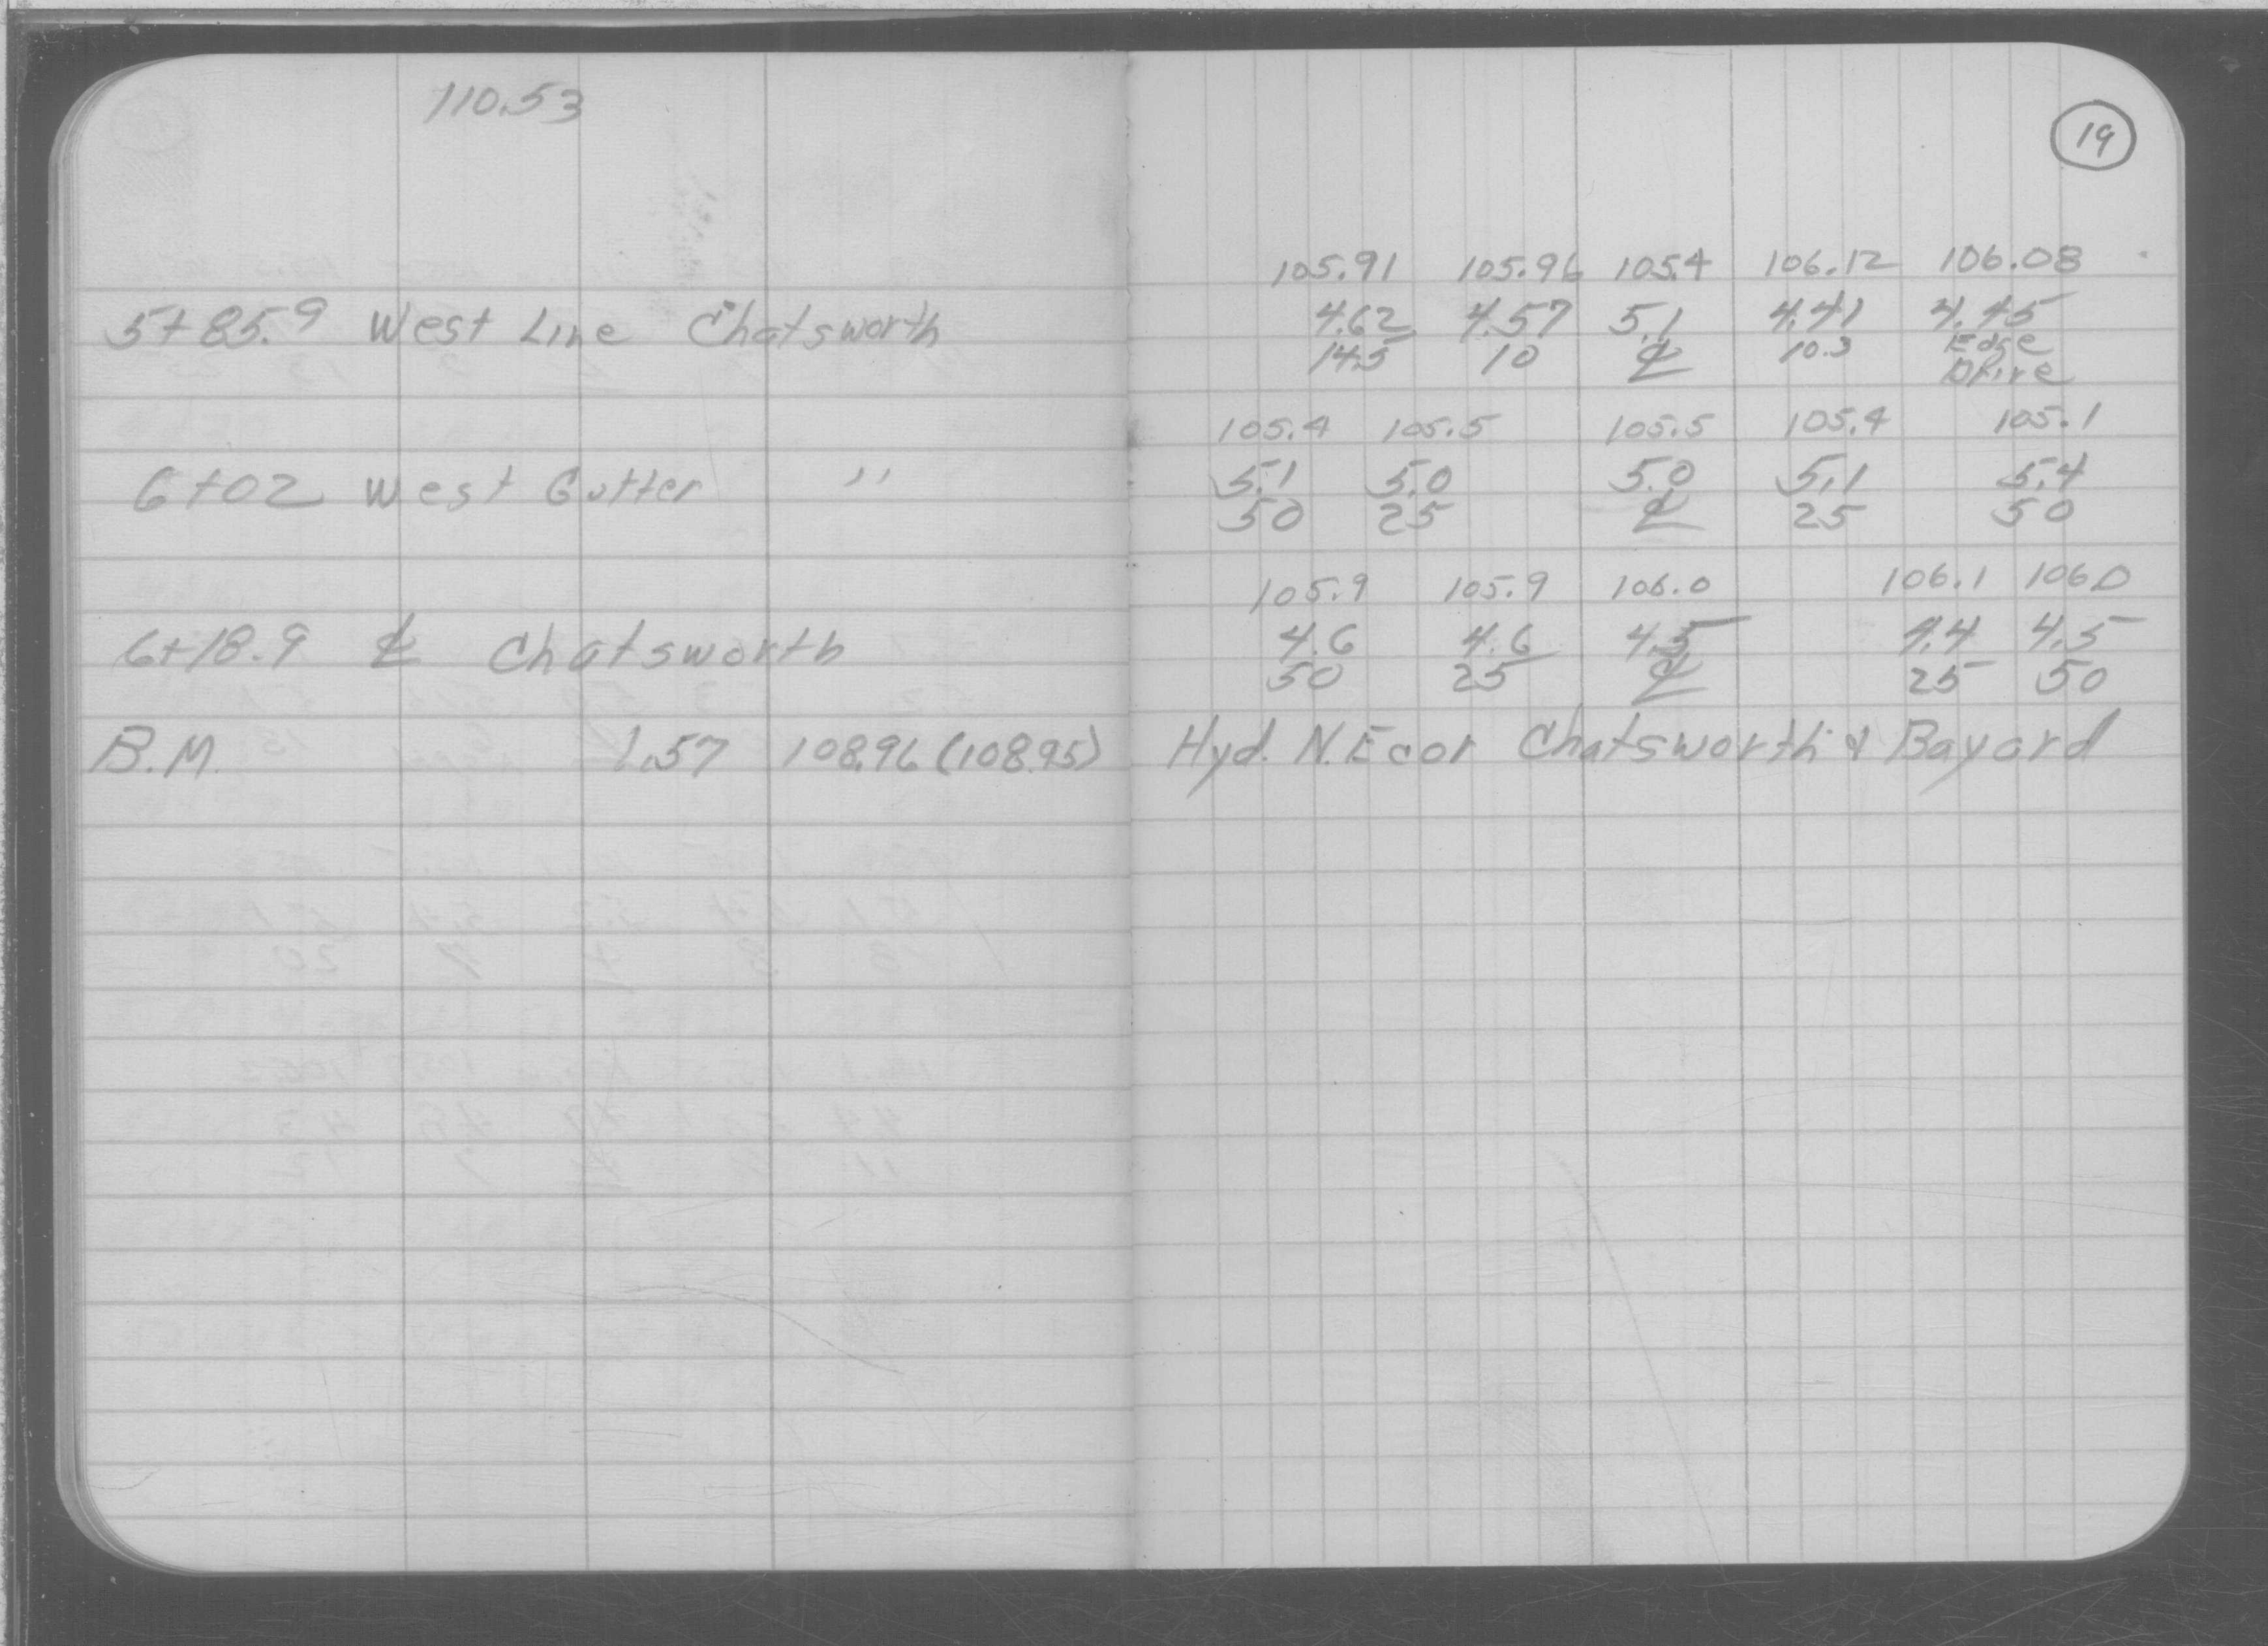 110.53
19
105.91 105.96 105.4 106.12 106.08
5+85.9 West Line Chatsworth 4.62 4.57 5.1 4.41 4.45
14.5 10 ℄ 10.3 Edge
Drive
105.4 105.5 105.5 105.4 105.1
6+02 West Gutter " 5.1 5.0 5.0 5.1 5.4
50 25 ℄ 25 50
105.9 105.9 106.0 106.1 106.0
6+18.9 ℄ Chatsworth 4.6 4.6 4.5 4.4 4.5
50 25 ℄ 25 50
B.M. 1.57 108.96 (108.95) Hyd. N.E cor Chatsworth & Bayard